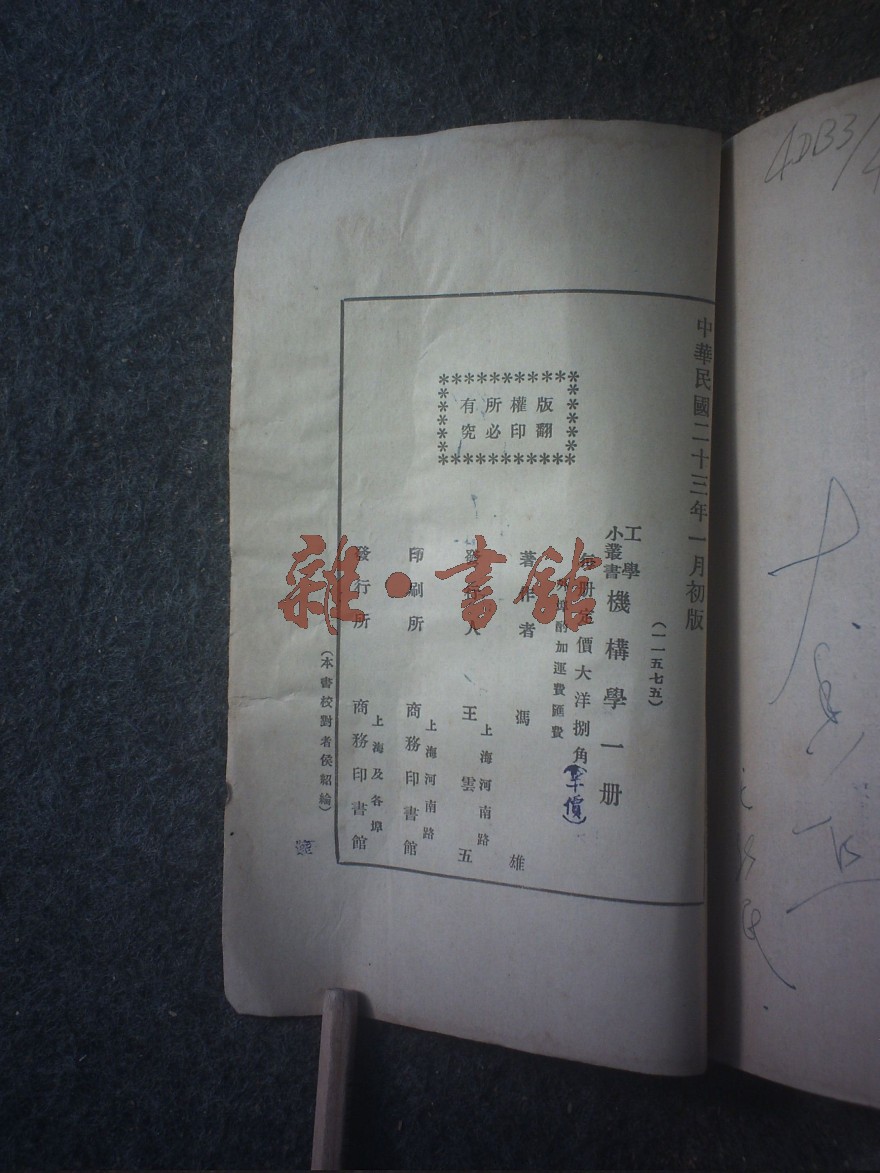 中華民國二十三年一月初版
(一一五七五)
工學
小叢書
機構學一册
每册定價大洋捌角
外埠酌加運費匯費
著作者 馮雄
發行人 王雲五
上海河南路
印刷所 商務印書館
上海河南路
發行所 商務印書館
上海及各埠
版權所有
翻印必究
(本書校對者侯紹綸)
雜·書館
4DB3/